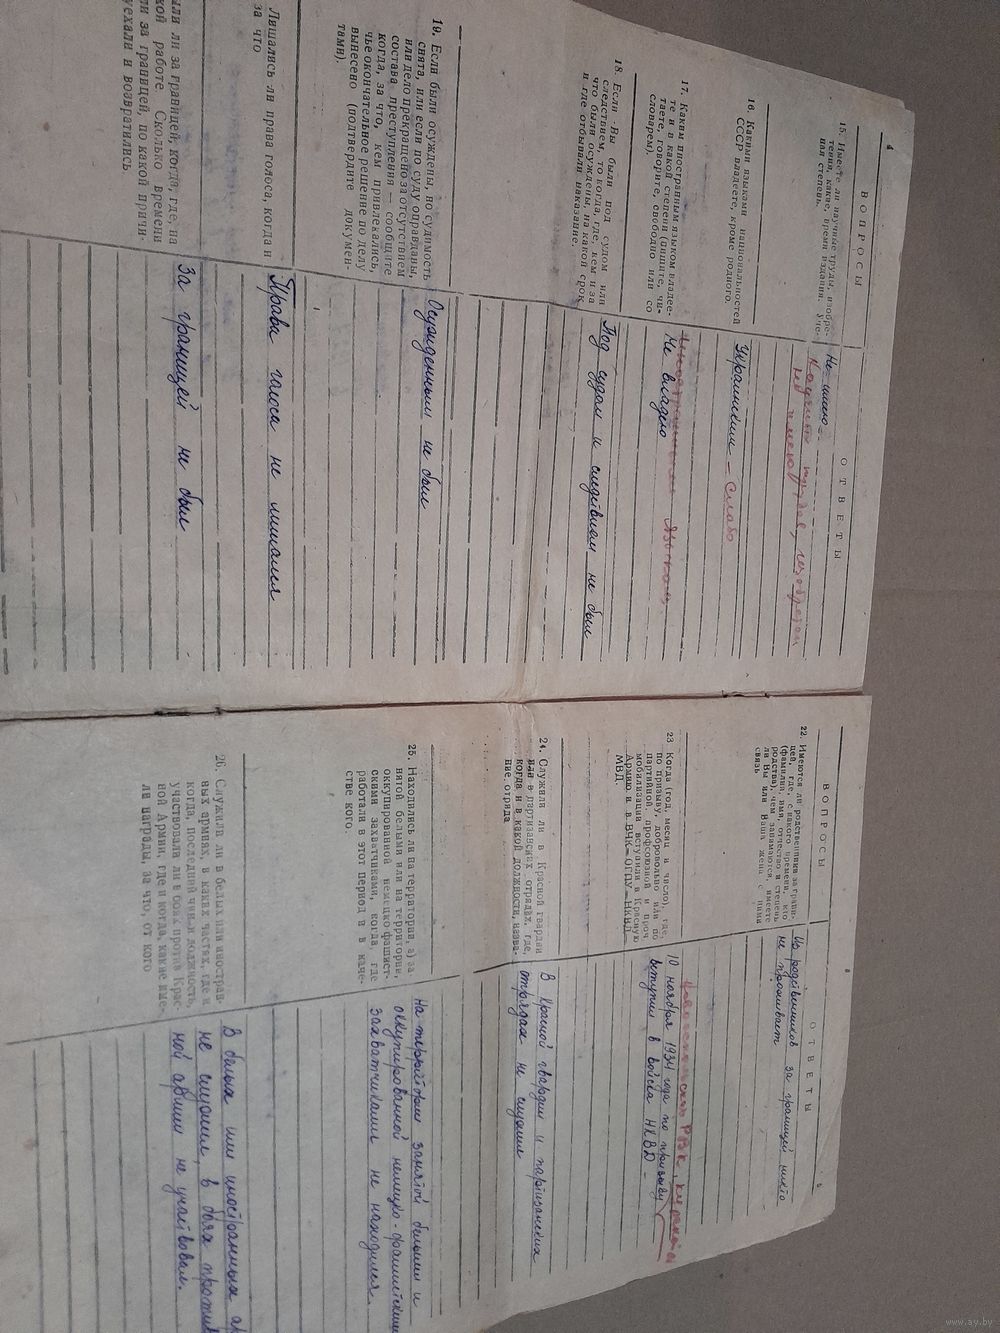 4
ВОПРОСЫ
ОТВЕТЫ
15. Имеете ли научные труды, изобре-
тения, какие, время издания. Уче-
ная степень.
Не имею.
не имею
16. Какими языками национальностей
СССР владеете, кроме родного.
Украинским – слабо
17. Каким иностранным языком владее-
те и в какой степени (пишите, чи-
таете, говорите, свободно или со
словарем).
Не владею
18. Если Вы были под судом или
следствием, то когда, где, кем и за
что были осуждены, на какой срок
и где отбывали наказание.
Под судом и следствием не был
19. Если были осуждены, но судимость
снята, или если по суду оправданы,
или дело прекращено за отсутствием
состава преступления — сообщите
когда, за что, кем привлекались,
чье окончательное решение по делу
вынесено (подтвердите докумен-
тами).
Осужденным не был
Лишались ли права голоса, когда и
за что
Права голоса не лишался
ыли ли за границей, когда, где, на
кой работе. Сколько времени
ли за границей, по какой причи-
уехали и возвратились
За границей не был
5
ВОПРОСЫ
ОТВЕТЫ
22. Имеются ли родственники за грани-
цей, где, с какого времени, кто
(фамилия, имя, отчество и степень
родства), чем занимаются, имеете
ли Вы или Ваша жена с ними
связь
Из родственников за границей никто
не проживает
23 Когда (год, месяц и число), где,
по призыву, добровольно или по
партийной, профсоюзной и проч
мобилизации вступили в Красную
Армию и в ВЧК–ОГПУ–НКВД–
МВД.
РВК,
10 ноября 1934 года по призыву
вступил в войска НКВД –
24. Служили ли в Красной гвардии
или в партизанских отрядах, где,
когда и в какой должности, назва-
ние, отряда
В Красной гвардии и партизанских
отрядах не служил
25. Находились ли на территории, а) за
нятой белыми или на территории,
оккупированной немецко-фашист-
скими захватчиками, когда, где
работали в этот период и в каче-
стве кого.
На территории занятой белыми и
оккупированной немецко-фашистскими
захватчиками не находился.
26. Служили ли в белых или иностран-
ных армиях, в каких частях, где и
когда, последний чин и должность,
участвовали ли в боях против Крас-
ной Армии, где и когда, какие име-
ли награды, за что, от кого
В белых или иностранных ар
не служил, в боях против
ной армии не участвовал.
www.ay.by